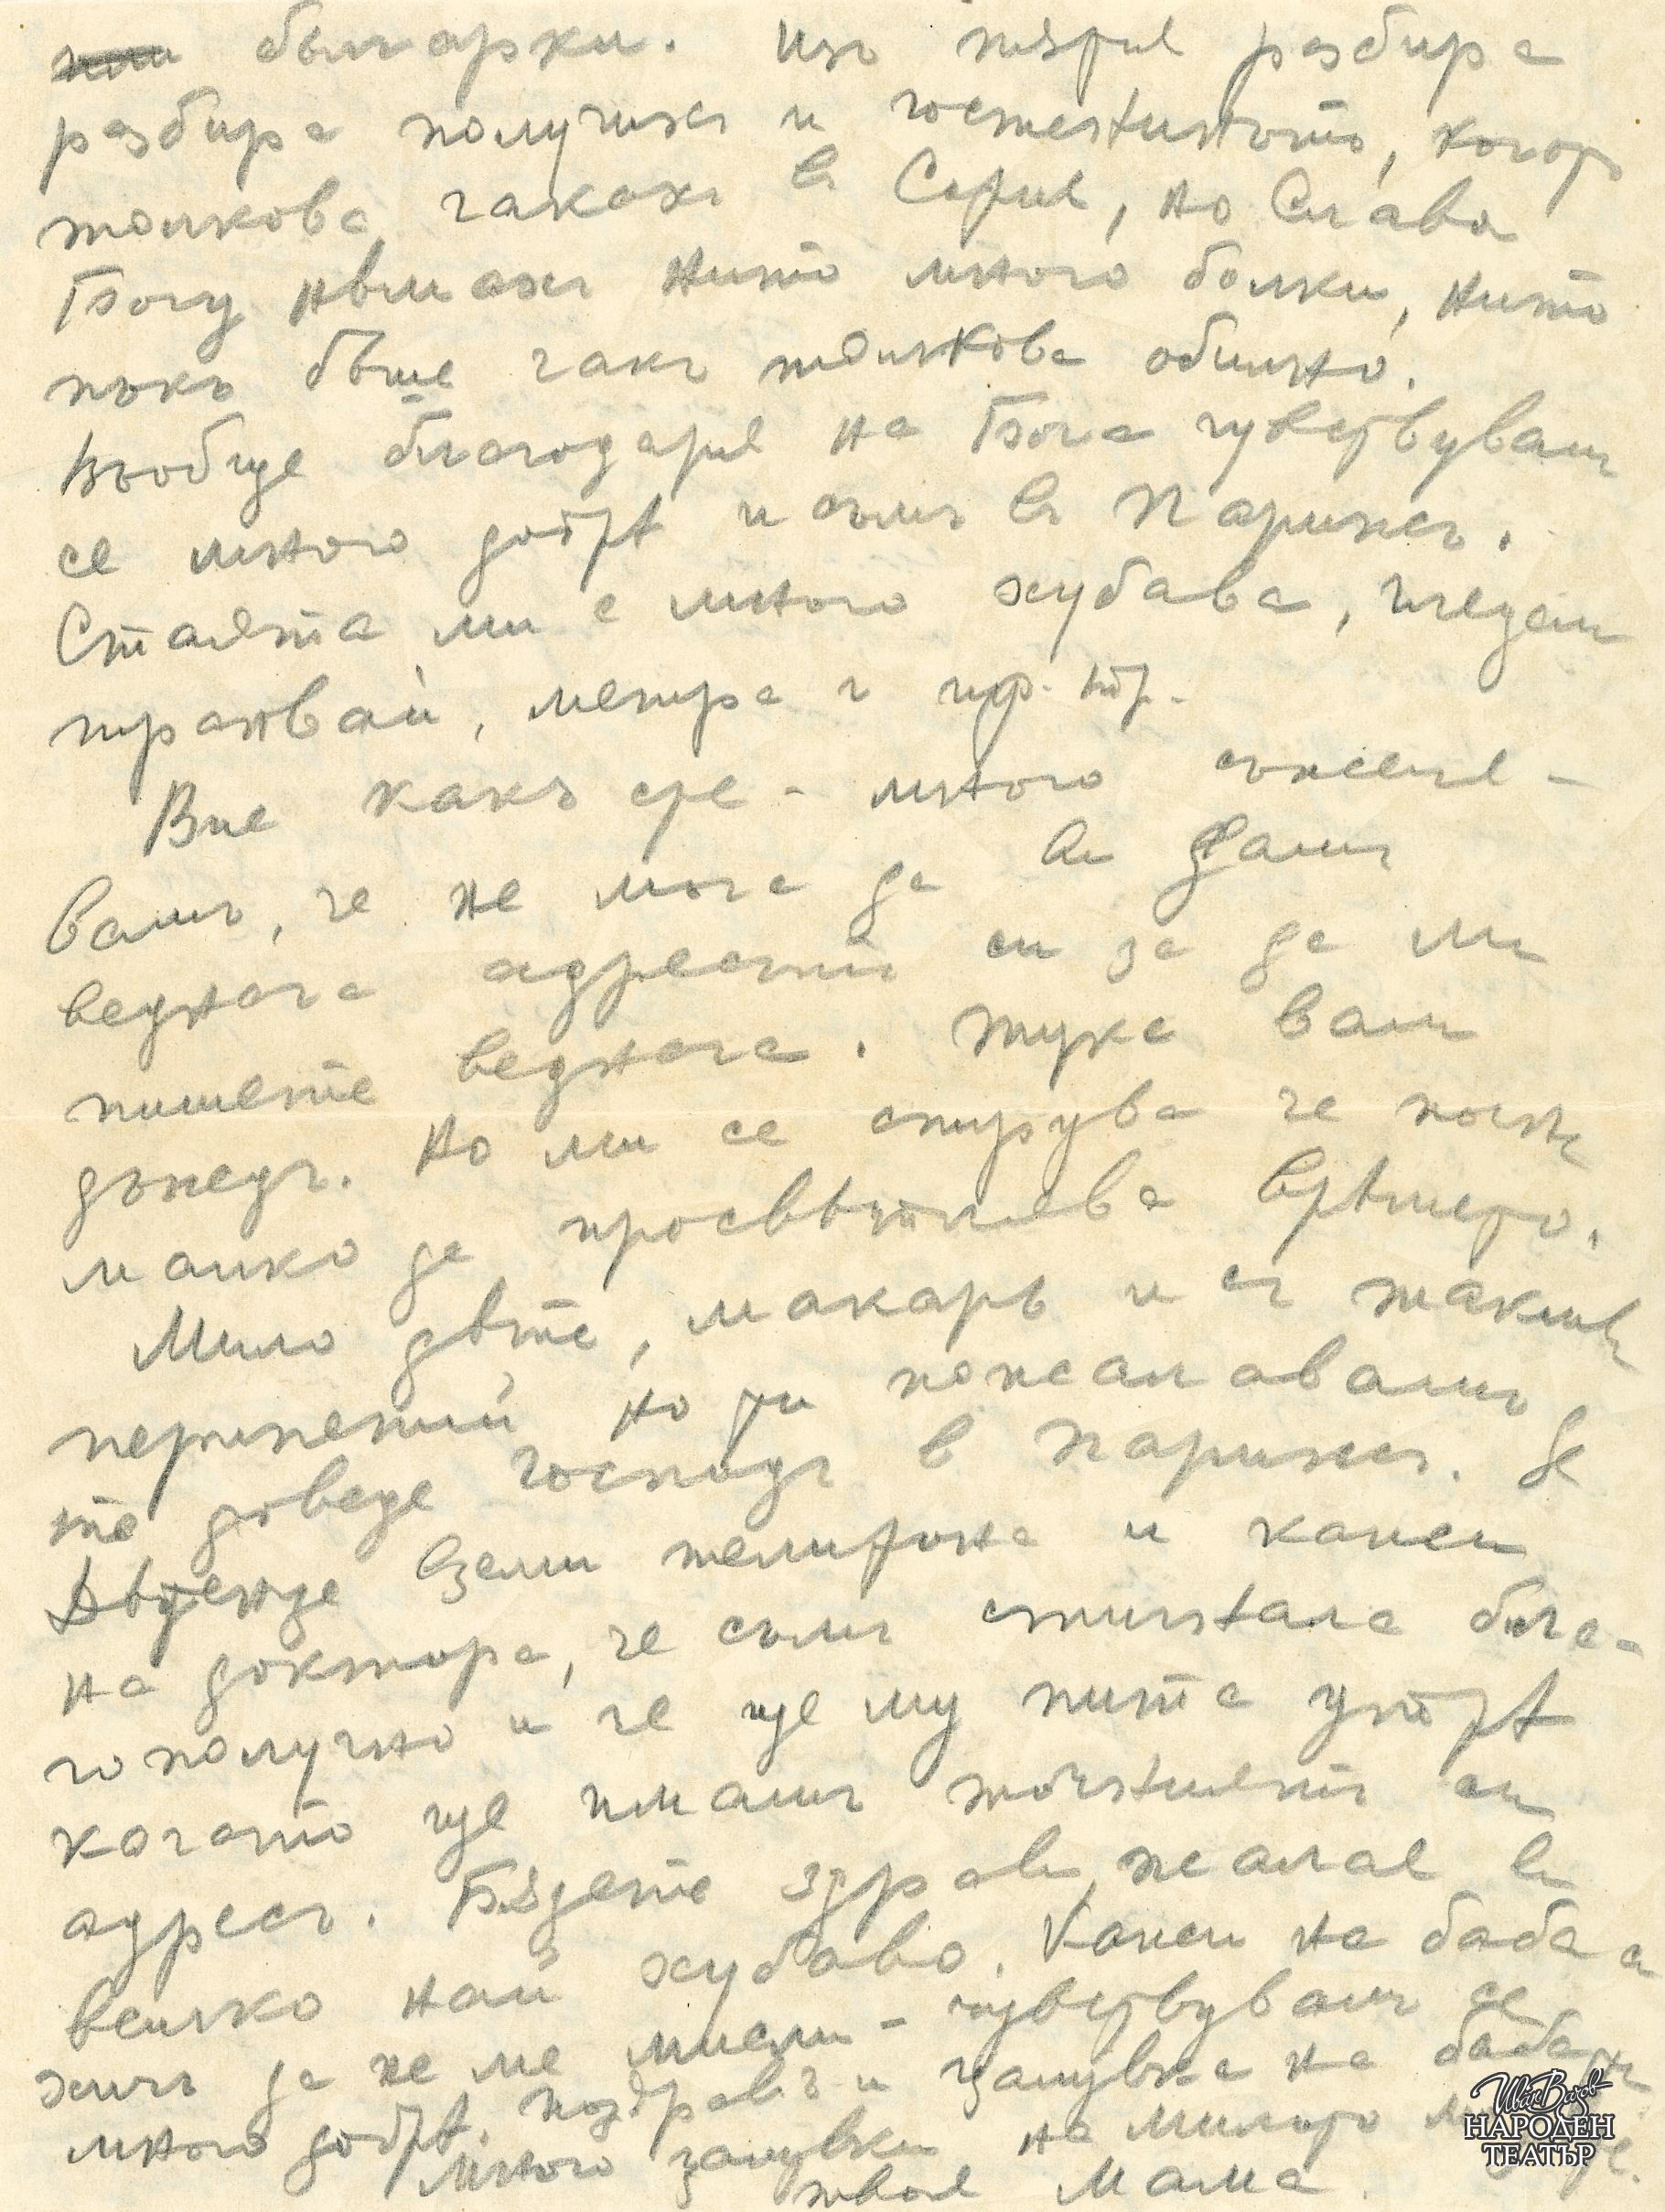 българки. Изъ пътя разбира
разбира получихъ и гостенинътъ, когото
толкова чакахъ въ София, но Слава
Богу нѣмахъ нито много болки, нито
пъкъ бѣше чакъ толкова обилно.
Въобще благодаря на Бога чувствувамъ
се много добрѣ и съмъ въ Парижъ.
Стаята ми е много хубава, гледам
трамвай, метра и пр. пр.
Вие какъ сте - много съжеля-
вамъ, че не мога да Ви дамъ
веднага адресътъ си за да ми
пишете веднага. Тука вали
дъждъ. Но ми се струва че почна
малко да просвѣтлява времето.
Мило дѣте, макаръ и съ такива
перипетии но ти пожелавамъ да
те доведе Господъ в Парижъ.
Нѣйде вземи телефона и кажи
на доктора, че съмъ стигнала бла-
гополучно и че ще му пиша утрѣ
когато ще имамъ точниятъ си
адресъ. Бѫдете здрави, желая ви
всичко най хубаво. Кажи на баба си
хичъ да не ме мисли - чувствувамъ се
много добрѣ. Поздравъ и целувка на баба ти
Много целувки на милото ми дете.
твоя Мама.
Иван Вазов
НАРОДЕН
ТЕАТЪР